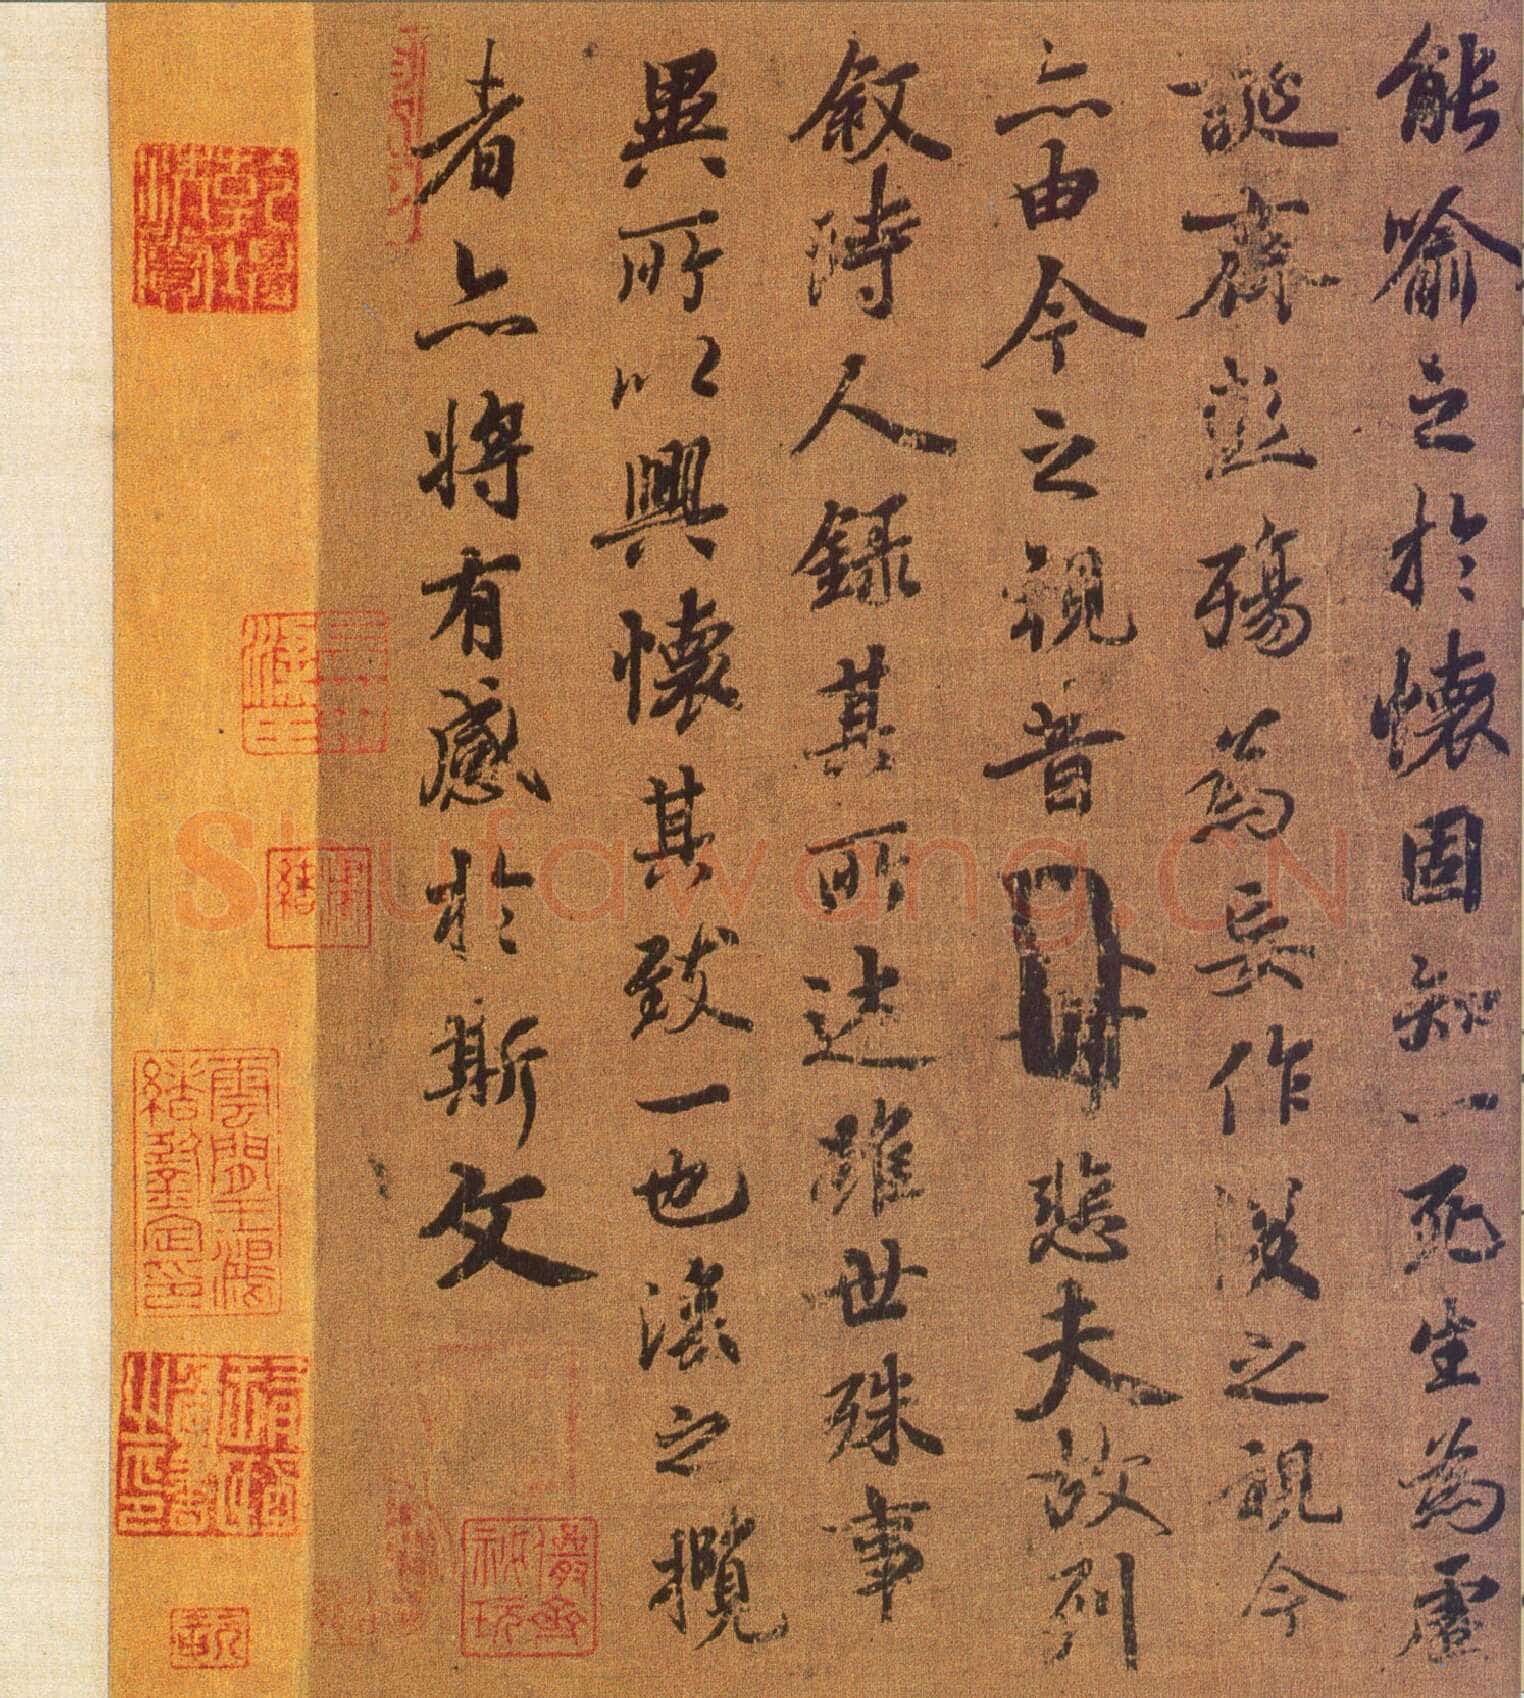 能喻之於懷固知一死生為虛
誕齊彭殤為妄作後之視今
亦由今之視昔悲夫故列
叙時人録其所述雖世殊事
異所以興懷其致一也後之攬
者亦將有感於斯文
儼齋秘玩
雲間王鴻緒鑒定印
Shufawang.CN